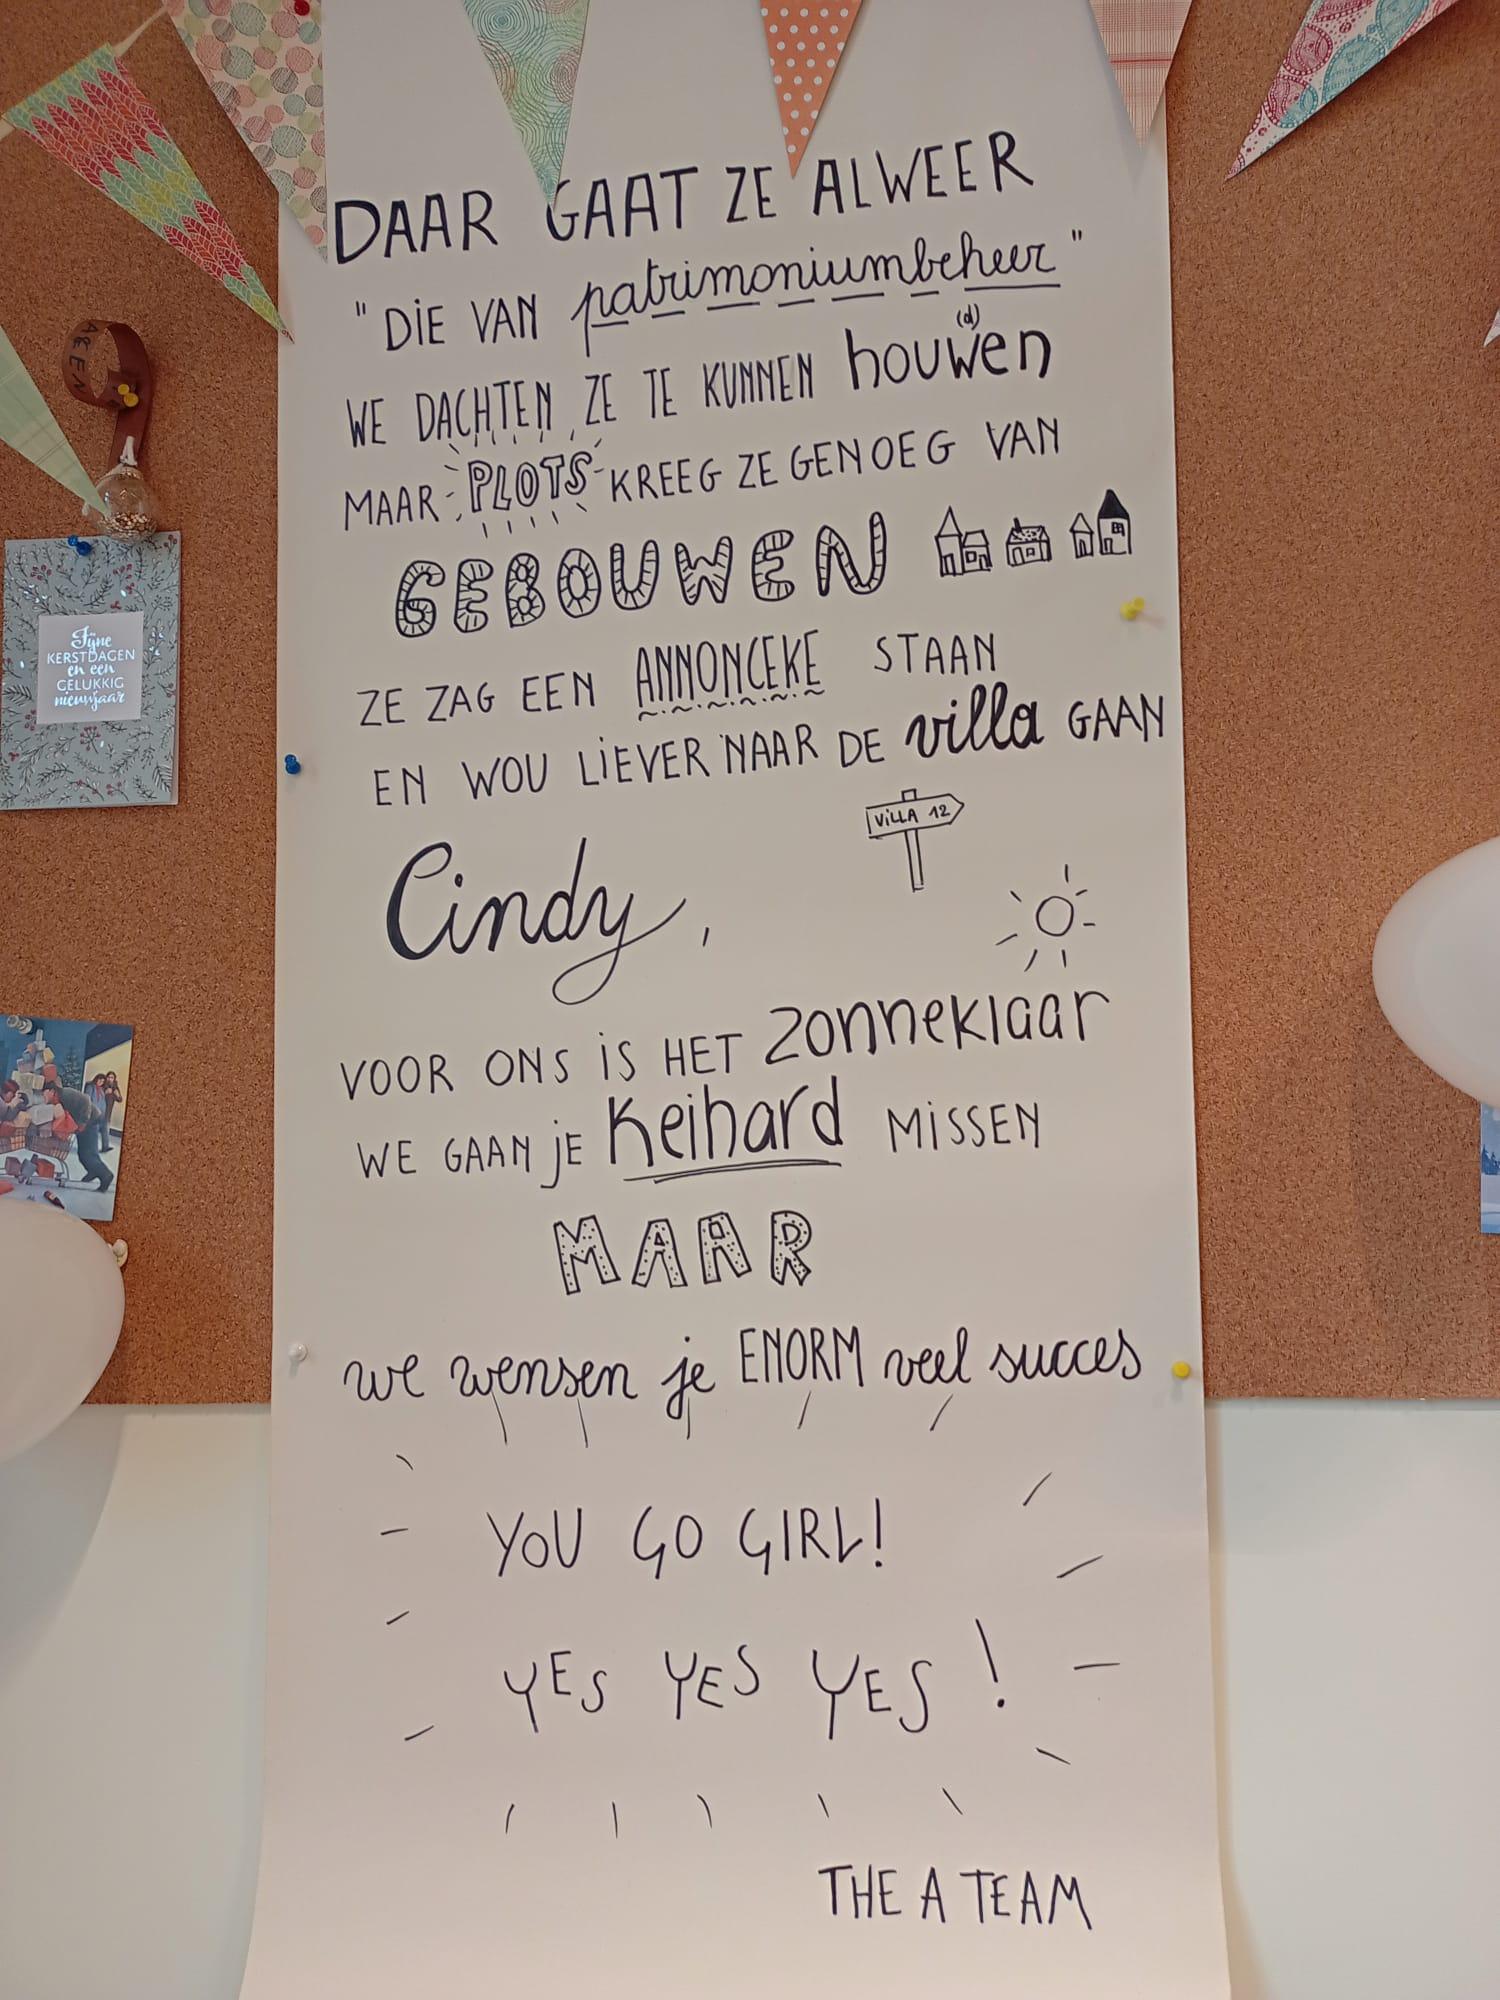 DAAR GAAT ZE ALWEER
"DIE VAN patrimoniumbeheer"
(d)
WE DACHTEN ZE TE KUNNEN houwen
MAAR PLOTS KREEG ZE GENOEG VAN
GEBOUWEN
ZE ZAG EEN ANNONCEKE STAAN
EN WOU LIEVER NAAR DE villa GAAN
VILLA 12
Cindy,
VOOR ONS IS HET zonneklaar
WE GAAN JE keihard MISSEN
MAAR
we wensen je ENORM veel succes
YOU GO GIRL!
YES YES YES!
THE A TEAM
Fijne
KERSTDAGEN
en een
GELUKKIG
nieuwjaar